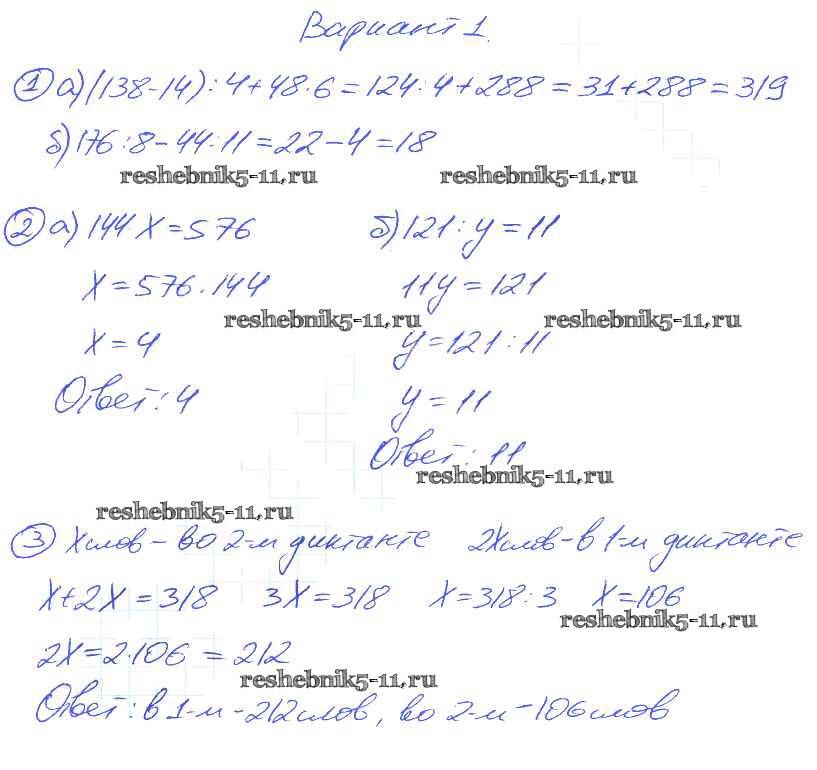 Вариант 1.
① а) (138-14):4+48·6=124:4+288=31+288=319
б) 176:8-44:11=22-4=18
reshebnik5-11.ru reshebnik5-11.ru
② а) 144·X=576 б) 121:y=11
X=576·144 11y=121
reshebnik5-11.ru reshebnik5-11.ru
X=4 y=121:11
Ответ: 4 y=11
Ответ: 11
reshebnik5-11.ru
reshebnik5-11.ru
③ X слов - во 2-м диктанте 2X слов - в 1-м диктанте
X+2X=318 3X=318 X=318:3 X=106
reshebnik5-11.ru
2X=2·106=212
reshebnik5-11.ru
Ответ: в 1-м - 212 слов, во 2-м - 106 слов